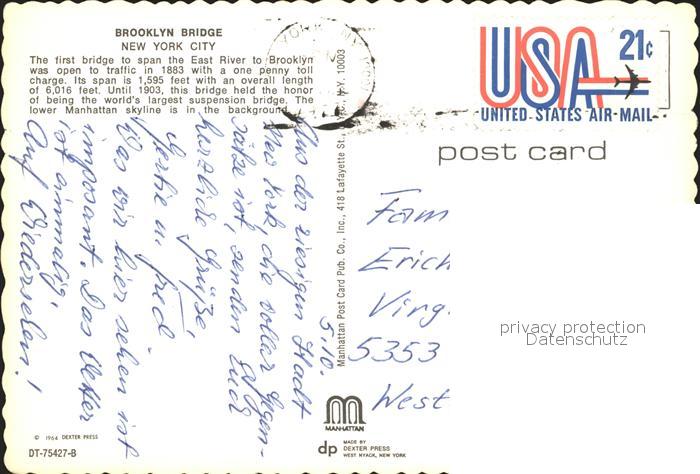 BROOKLYN BRIDGE
NEW YORK CITY
The first bridge to span the East River to Brooklyn
was open to traffic in 1883 with a one penny toll
charge. Its span is 1,595 feet with an overall length
of 6,016 feet. Until 1903, this bridge held the honor
of being the world's largest suspension bridge. The
lower Manhattan skyline is in the background.
USA 21c
UNITED STATES AIR-MAIL
post card
5.10.
Aus der riesigen Stadt
New York, die voller Gegen-
sätze ist, senden Euch
herzliche Grüße
Gertie u. Fred
Was wir hier sehen ist
imposant. Das Wetter
ist einmalig.
Auf Wiedersehen!
Manhattan Post Card Pub. Co., Inc., 418 Lafayette St., N.Y. 10003
Fam
Erich
Virg.
5353
West
privacy protection
Datenschutz
MANHATTAN
dp MADE BY
DEXTER PRESS
WEST NYACK, NEW YORK
© 1964 DEXTER PRESS
DT-75427-B